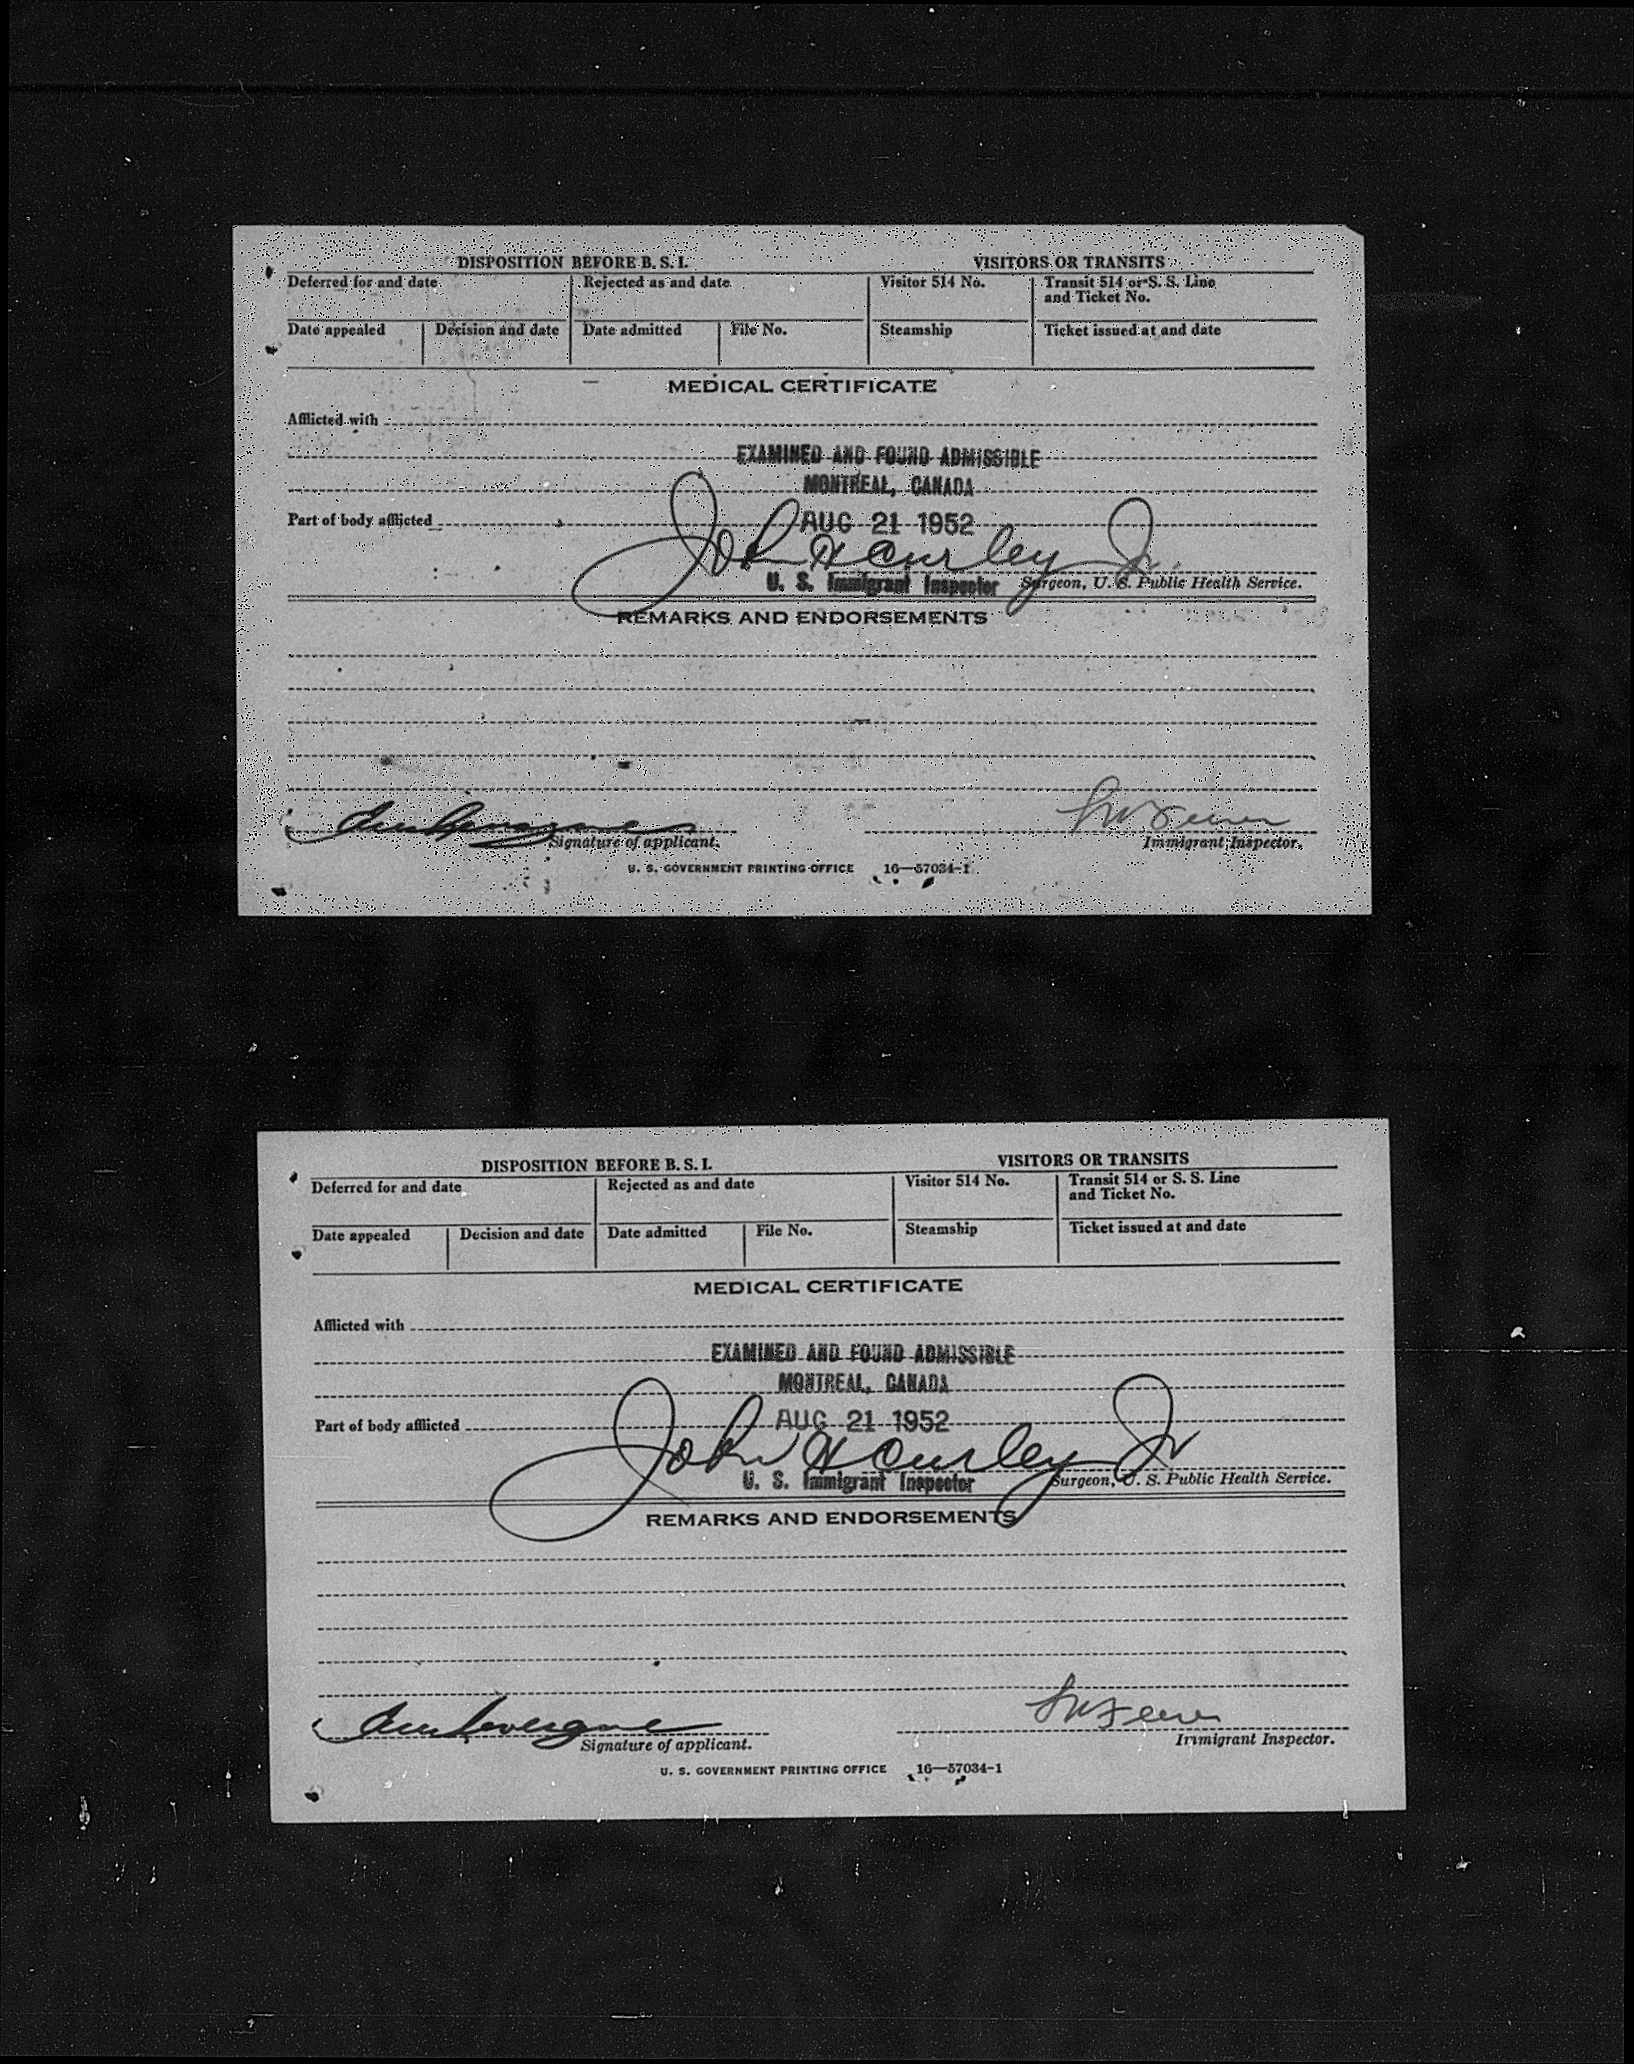 DISPOSITION BEFORE B. S. I. VISITORS OR TRANSITS
Deferred for and date Rejected as and date Visitor 514 No. Transit 514 or S. S. Line
and Ticket No.
Date appealed Decision and date Date admitted File No. Steamship Ticket issued at and date
MEDICAL CERTIFICATE
Afflicted with
EXAMINED AND FOUND ADMISSIBLE
MONTREAL, CANADA
Part of body afflicted AUG 21 1952
John H Curley Jr.
U. S. Immigrant Inspector Surgeon, U. S. Public Health Service.
REMARKS AND ENDORSEMENTS
Signature of applicant. Immigrant Inspector.
U. S. GOVERNMENT PRINTING OFFICE 16—57034-1
DISPOSITION BEFORE B. S. I. VISITORS OR TRANSITS
Deferred for and date Rejected as and date Visitor 514 No. Transit 514 or S. S. Line
and Ticket No.
Date appealed Decision and date Date admitted File No. Steamship Ticket issued at and date
MEDICAL CERTIFICATE
Afflicted with
EXAMINED AND FOUND ADMISSIBLE
MONTREAL, CANADA
Part of body afflicted AUG 21 1952
John H Curley Jr
U. S. Immigrant Inspector Surgeon, U. S. Public Health Service.
REMARKS AND ENDORSEMENTS
Signature of applicant. Immigrant Inspector.
U. S. GOVERNMENT PRINTING OFFICE 16—57034-1